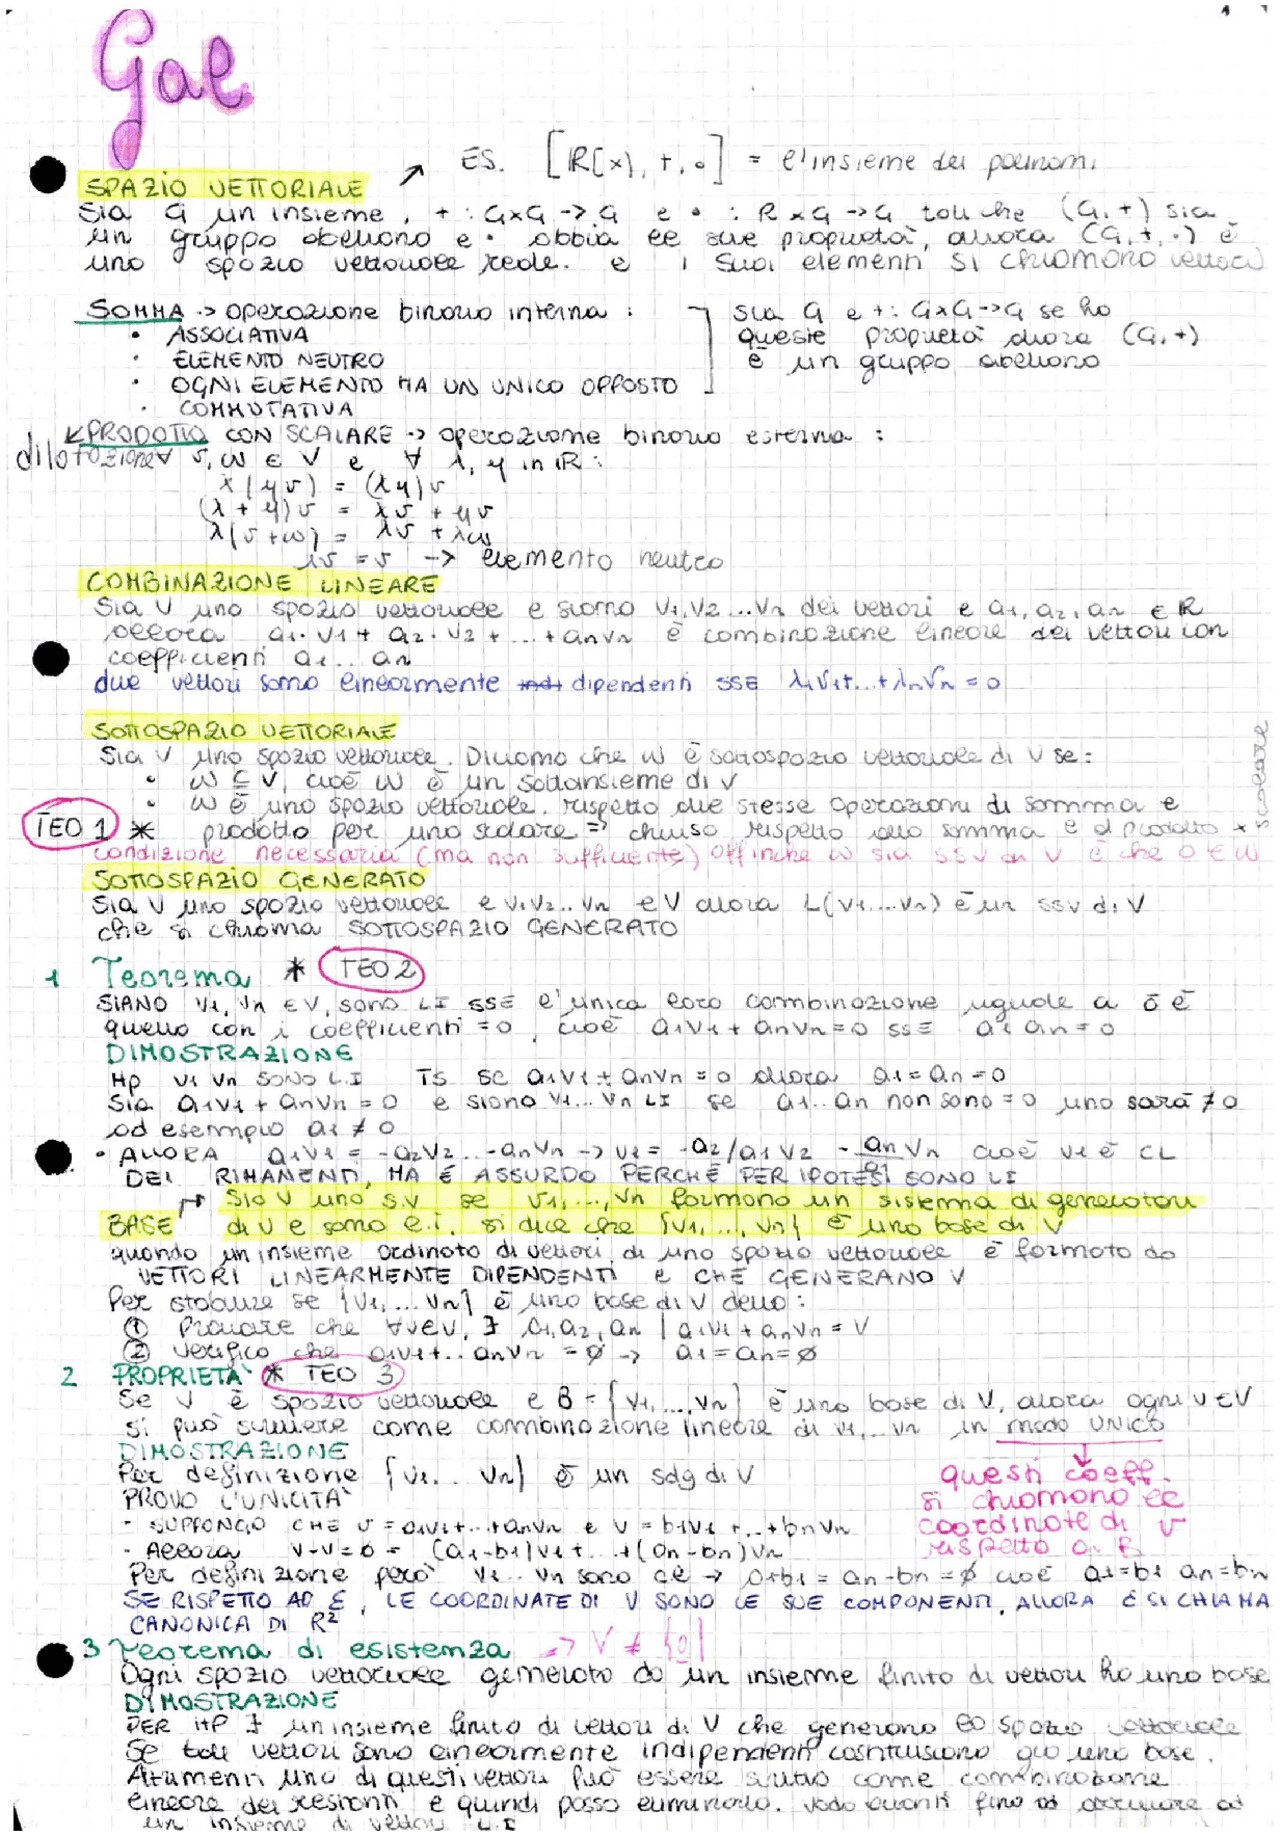 Gal
ES. [R[x], +, •] = l'insieme dei polinomi
SPAZIO VETTORIALE
Sia G un insieme, + : G×G -> G e • : R×G -> G tali che (G,+) sia
un gruppo abeliano e • abbia le sue proprietà, allora (G,+,•) è
uno spazio vettoriale reale. e i suoi elementi si chiamano vettori
SOMMA -> operazione binaria interna :
• ASSOCIATIVA
• ELEMENTO NEUTRO
• OGNI ELEMENTO HA UN UNICO OPPOSTO
• COMMUTATIVA
sia G e + : G×G -> G se ho
queste proprietà allora (G,+)
è un gruppo abeliano
PRODOTTO CON SCALARE -> operazione binaria esterna :
dilatazione ∀ v, w ∈ V e ∀ λ, y in R :
λ(yv) = (λy)v
(λ + y)v = λv + yv
λ(v+w) = λv + λw
1v = v -> elemento neutro
COMBINAZIONE LINEARE
Sia V uno spazio vettoriale e siano v1, v2 ... vn dei vettori e a1, a2, an ∈ R
allora a1·v1 + a2·v2 + ... + anvn è combinazione lineare dei vettori con
coefficienti a1... an
due vettori sono linearmente dipendenti SSE λ1v1+...+λnvn = 0
SOTTOSPAZIO VETTORIALE
Sia V uno spazio vettoriale. Diciamo che W è sottospazio vettoriale di V se:
• W ⊆ V, cioè W è un sottoinsieme di V
• W è uno spazio vettoriale rispetto alle stesse operazioni di somma e
TEO 1 * prodotto per uno scalare => chiuso rispetto alla somma e al prodotto × scalare
condizione necessaria (ma non sufficiente) affinche W sia SSV di V è che 0 ∈ W
SOTTOSPAZIO GENERATO
Sia V uno spazio vettoriale e v1 v2.. vn ∈ V allora L(v1....vn) è un ssv di V
che si chiama SOTTOSPAZIO GENERATO
1 Teorema * TEO 2
SIANO v1, vn ∈ V, sono LI SSE l'unica loro combinazione uguale a 0 è
quella con i coefficienti = 0, cioè a1v1 + anvn = 0 SSE a1 an = 0
DIMOSTRAZIONE
Hp v1 vn SONO L.I TS se a1v1 + anvn = 0 allora a1 = an = 0
Sia a1v1 + anvn = 0 e siano v1... vn LI se a1.. an non sono = 0 uno sarà ≠ 0
ad esempio a1 ≠ 0
• ALLORA a1v1 = -a2v2..-anvn -> v1 = -a2/a1 v2 - an/a1 vn cioè v1 è CL
DEI RIMANENTI, MA È ASSURDO PERCHÉ PER IPOTESI SONO LI
Sia V uno s.v se v1,..., vn formano un sistema di generatori
BASE di V e sono l.i. si dice che {v1,..., vn} è una base di V
quando un insieme ordinato di vettori di uno spazio vettoriale è formato da
VETTORI LINEARMENTE DIPENDENTI e CHE GENERANO V
Per stabilire se {v1,... vn} è una base di V devo :
① Provare che ∀v∈V, ∃ a1, a2, an | a1v1 + anvn = V
② verifico che a1v1+..anvn = ∅ -> a1 = an = ∅
2 PROPRIETÀ * TEO 3
Se V è spazio vettoriale e B = {v1,..., vn} è una base di V, allora ogni v∈V
si può scrivere come combinazione lineare di v1,.. vn in modo UNICO
DIMOSTRAZIONE
Per definizione {v1... vn} è un sdg di V
questi coeff.
si chiamano le
coordinate di v
rispetto a B
PROVO L'UNICITÀ
- SUPPONGO CHE v = a1v1+..+anvn e v = b1v1 +..+ bnvn
- Allora v-v=0 = (a1-b1)v1+...+(an-bn)vn
Per definizione però v1.. vn sono li -> a1-b1 = an-bn = ∅ cioè a1=b1 an=bn
SE RISPETTO AD E, LE COORDINATE DI V SONO LE SUE COMPONENTI, ALLORA E SI CHIAMA
CANONICA DI R²
3 Teorema di esistenza => V ≠ {0}
Ogni spazio vettoriale generato da un insieme finito di vettori ha una base
DIMOSTRAZIONE
PER HP ∃ un insieme finito di vettori di V che generano lo spazio vettoriale
Se tali vettori sono linearmente indipendenti costituiscono già una base.
Altrimenti uno di questi vettori può essere scritto come combinazione
lineare dei restanti e quindi posso eliminarlo. Vado avanti fino ad arrivare ad
un insieme di vettori L.I